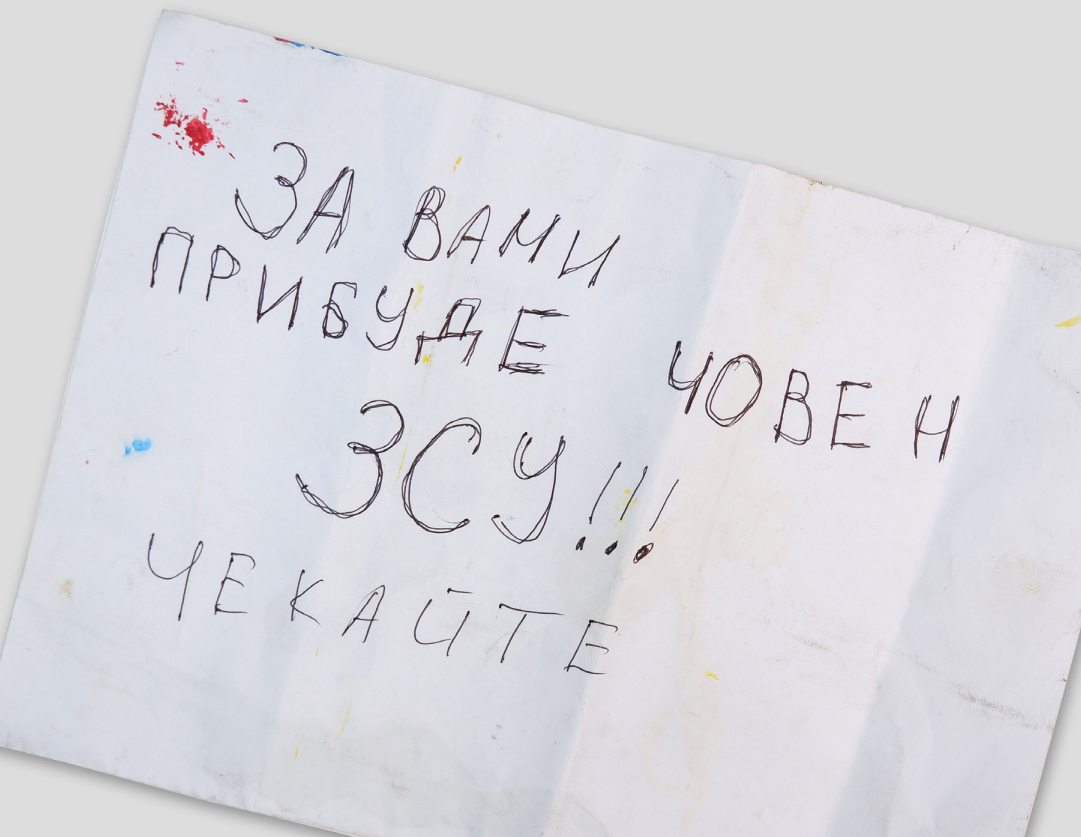 ЗА ВАМИ
ПРИБУДЕ ЧОВЕН
ЗСУ!!!
ЧЕКАЙТЕ